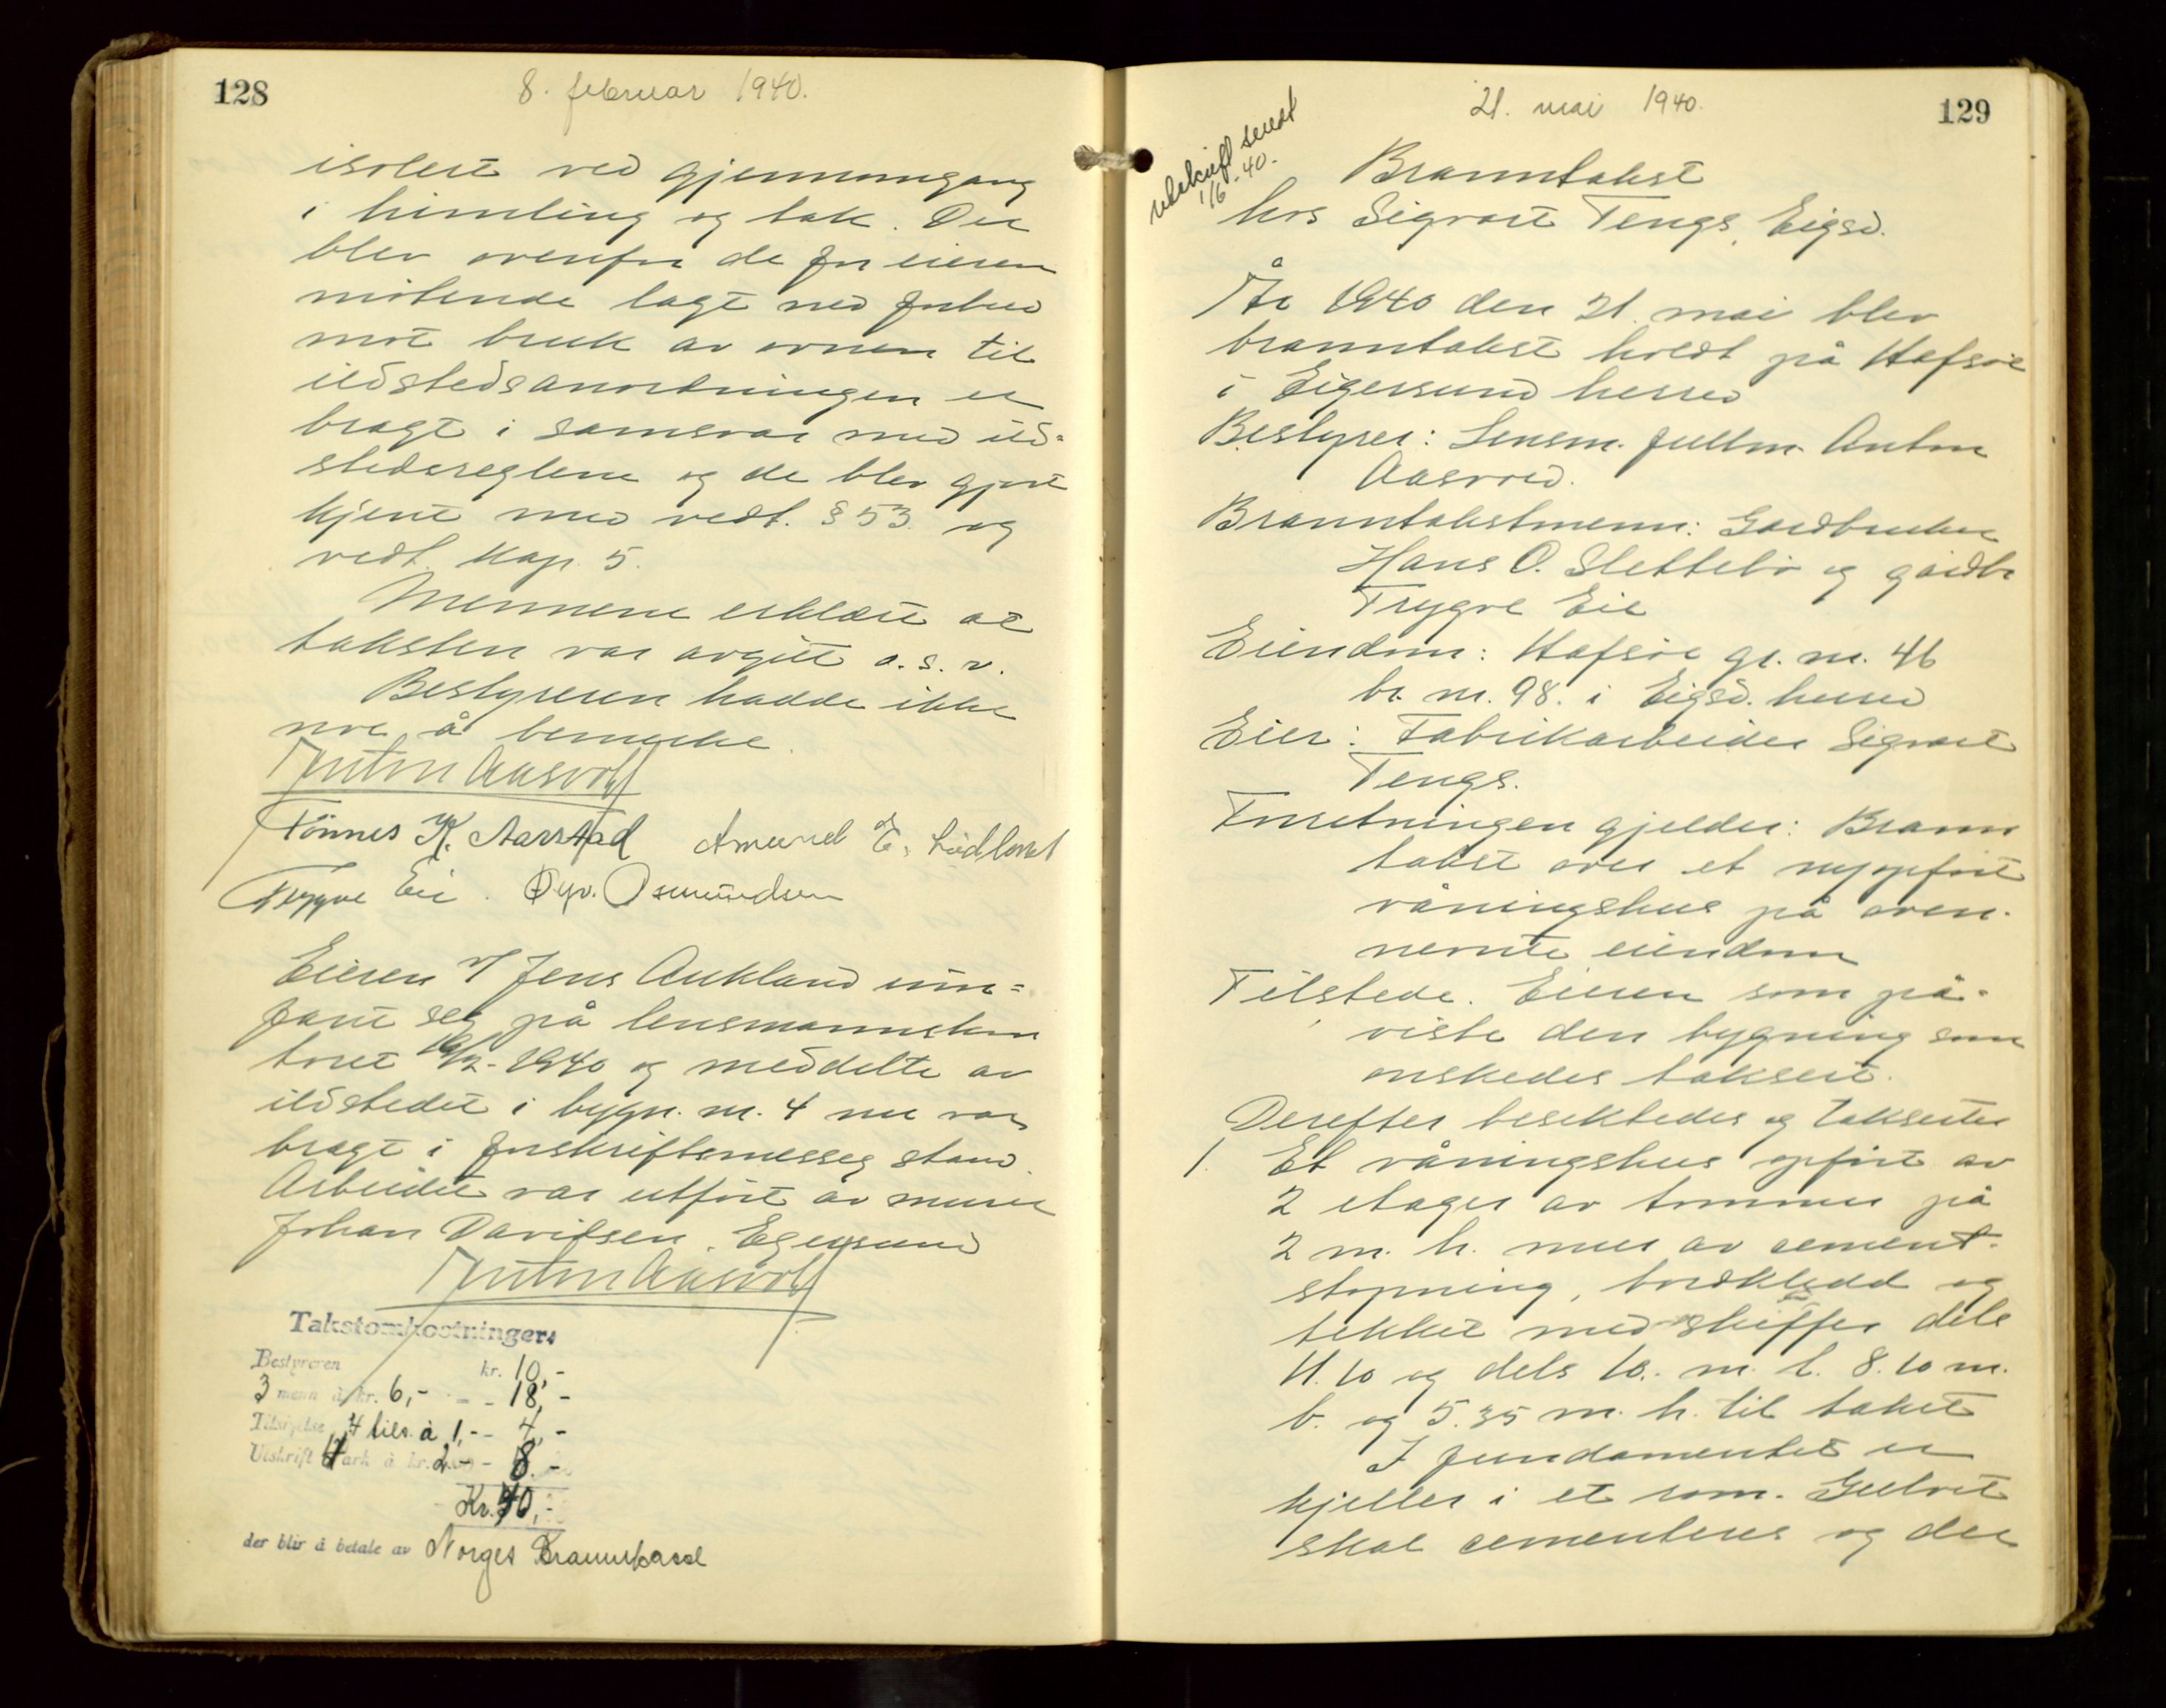 128
8. februar 1940.
isolert ved gjennemgang
i himling og tak. Der
blev ovenfor de for eieren
møtende lagt ned forbud
mot bruk av ovnen til
ildstedsanordningen er
bragt i samsvar med ild=
stedsreglene og de blev gjort
kjent med vedt. § 53. og
vedt. kap. 5.
Mennene erklært at
taksten var avgitt o.s.v.
Bestyreren hadde ikke
noe å bemerke.
Anton Aasvold
Tönnes K. Aarstad Amund E.
Trygve Eie. Osmundsen
Eieren v/ Jens Aukland inn=
fant seg på lensmannskon
toret 19/2-1940 og meddelte at
ildstedet i bygn. nr. 4 nu var
bragt i forskriftsmessig stand.
Arbeidet var utført av murer
Johan Davidsen, Egersund
Anton Aasvold
Takstomkostninger:
Bestyreren kr. 10,-
3 menn à kr. 6,- - - 18,-
Tilsigelse, 4 tils. à 1,- - 4,-
Utskrift 4 ark à kr. 2,- - 8.-
Kr. 40,-
der blir å betale av Norges Brannkasse
21. mai 1940.
129
utskrift sendt
1/6-40-
Branntakst
hos Sigvart Tengs, Eigsd.
År 1940 den 21. mai blev
branntakst holdt på Hafsøe
i Eigersund herred
Bestyrer: Lensm. fullm. Anton
Aasvold.
Branntakstmenn: Gardbruker
Hans O. Slettebø og gardbr
Trygve Eie
Eiendom: Hafsøe gr. nr. 46
br. nr. 98. i Eigsd. herred
Eier: Fabrikarbeider Sigvart
Tengs.
Forretningen gjelder: Brann
takst over et nyopført
våningshus på oven-
nevnte eiendom
Tilstede. Eieren som på-
viste den bygning som
ønskedes taksert.
Derefter besiktedes og taksertes
1. Et våningshus opført av
2 etager av tømmer på
2 m. h. mur av cement-
støpning, bordkledd og
tekket med skiffer dels
11.10 og dels 10.- m. l. 8.10 m.
b. og 5.35 m. h. til taket
I fundamentet er
kjeller i et rom. Gulvet
skal cementeres og der